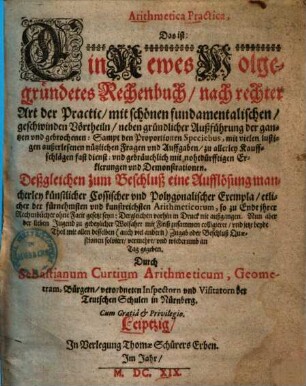 Arithmetica Practica.
Das ist:
Ein Newes Wolge-
gründetes Rechenbuch/ nach rechter
Art der Practic/ mit schönen fundamentalischen/
geschwinden Vörtheiln/ neben gründlicher Außführung der gan-
tzen vnd gebrochenen: Sampt den Proportionen Speciebus, mit vielen lusti-
gen außerlesenen nützlichen Fragen vnd Auffgaben/ zu allerley Kauff-
schlägen fast dienst: vnd gebräuchlich mit nohtdürfftigen Er-
klerungen vnd Demonstrationen.
Deßgleichen zum Beschluß eine Aufflösung man-
cherley künstlicher Cossischer vnd Polygonalischer Exempla/ etli-
cher der fürnehmsten vnd kunstreichsten Arithmeticorum, so zu Ende jhrer
Rechenbücher ohne Facit gesetzt seyn: Dergleichen vorhin in Druck nie außgangen. Nun aber
der lieben Jugend zu gedeylicher Wolfart mit Fleiß zusammen colligiret/ vnd jetzt
Theil mit allen desselben (auch von andern) Zugab oder Beschluß Quæ-
stionen solviret/ vermehret/ vnd widerumb an
Tag gegeben.
Durch
Sebastianum Curtium Arithmeticum, Geome-
tram, Bürgern/ verordneten Inspectorn vnd Visitatorn der
Teutschen Schulen in Nürnberg.
Cum Gratiâ & Privilegio.
Leipzig/
In Verlegung Thomæ Schürers Erben.
Im Jahr/
M. DC. XIX.